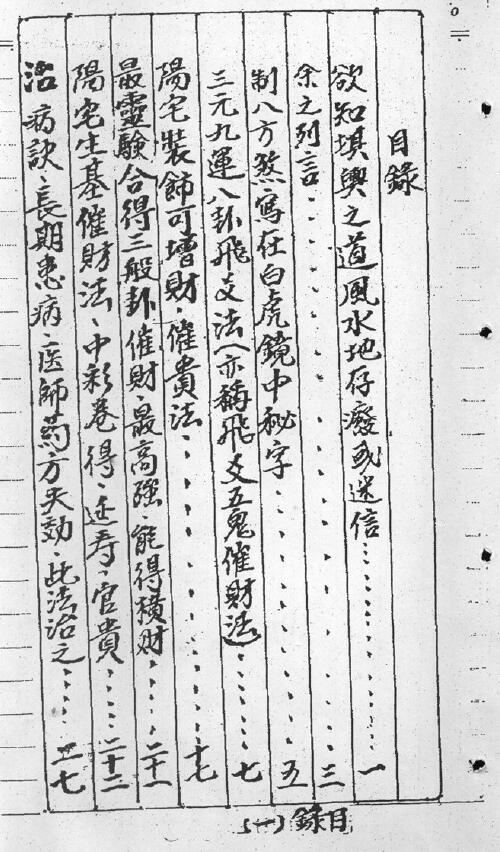 目錄
欲知堪輿之道風水地存廢或迷信……………一
余之列言……………三
制八方煞寫在白虎鏡中秘字……………五
三元九運八卦飛爻法(亦稱飛爻五鬼催財法)……七
陽宅裝飾可增財、催貴法……………十七
最靈驗合得三般卦催財、最高強、能得橫財……二十一
陽宅生基催財法、中彩卷得、延寿、官貴……二十二
治病訣、長期患病、医師药方失効、此法治之……二七
目錄(一)